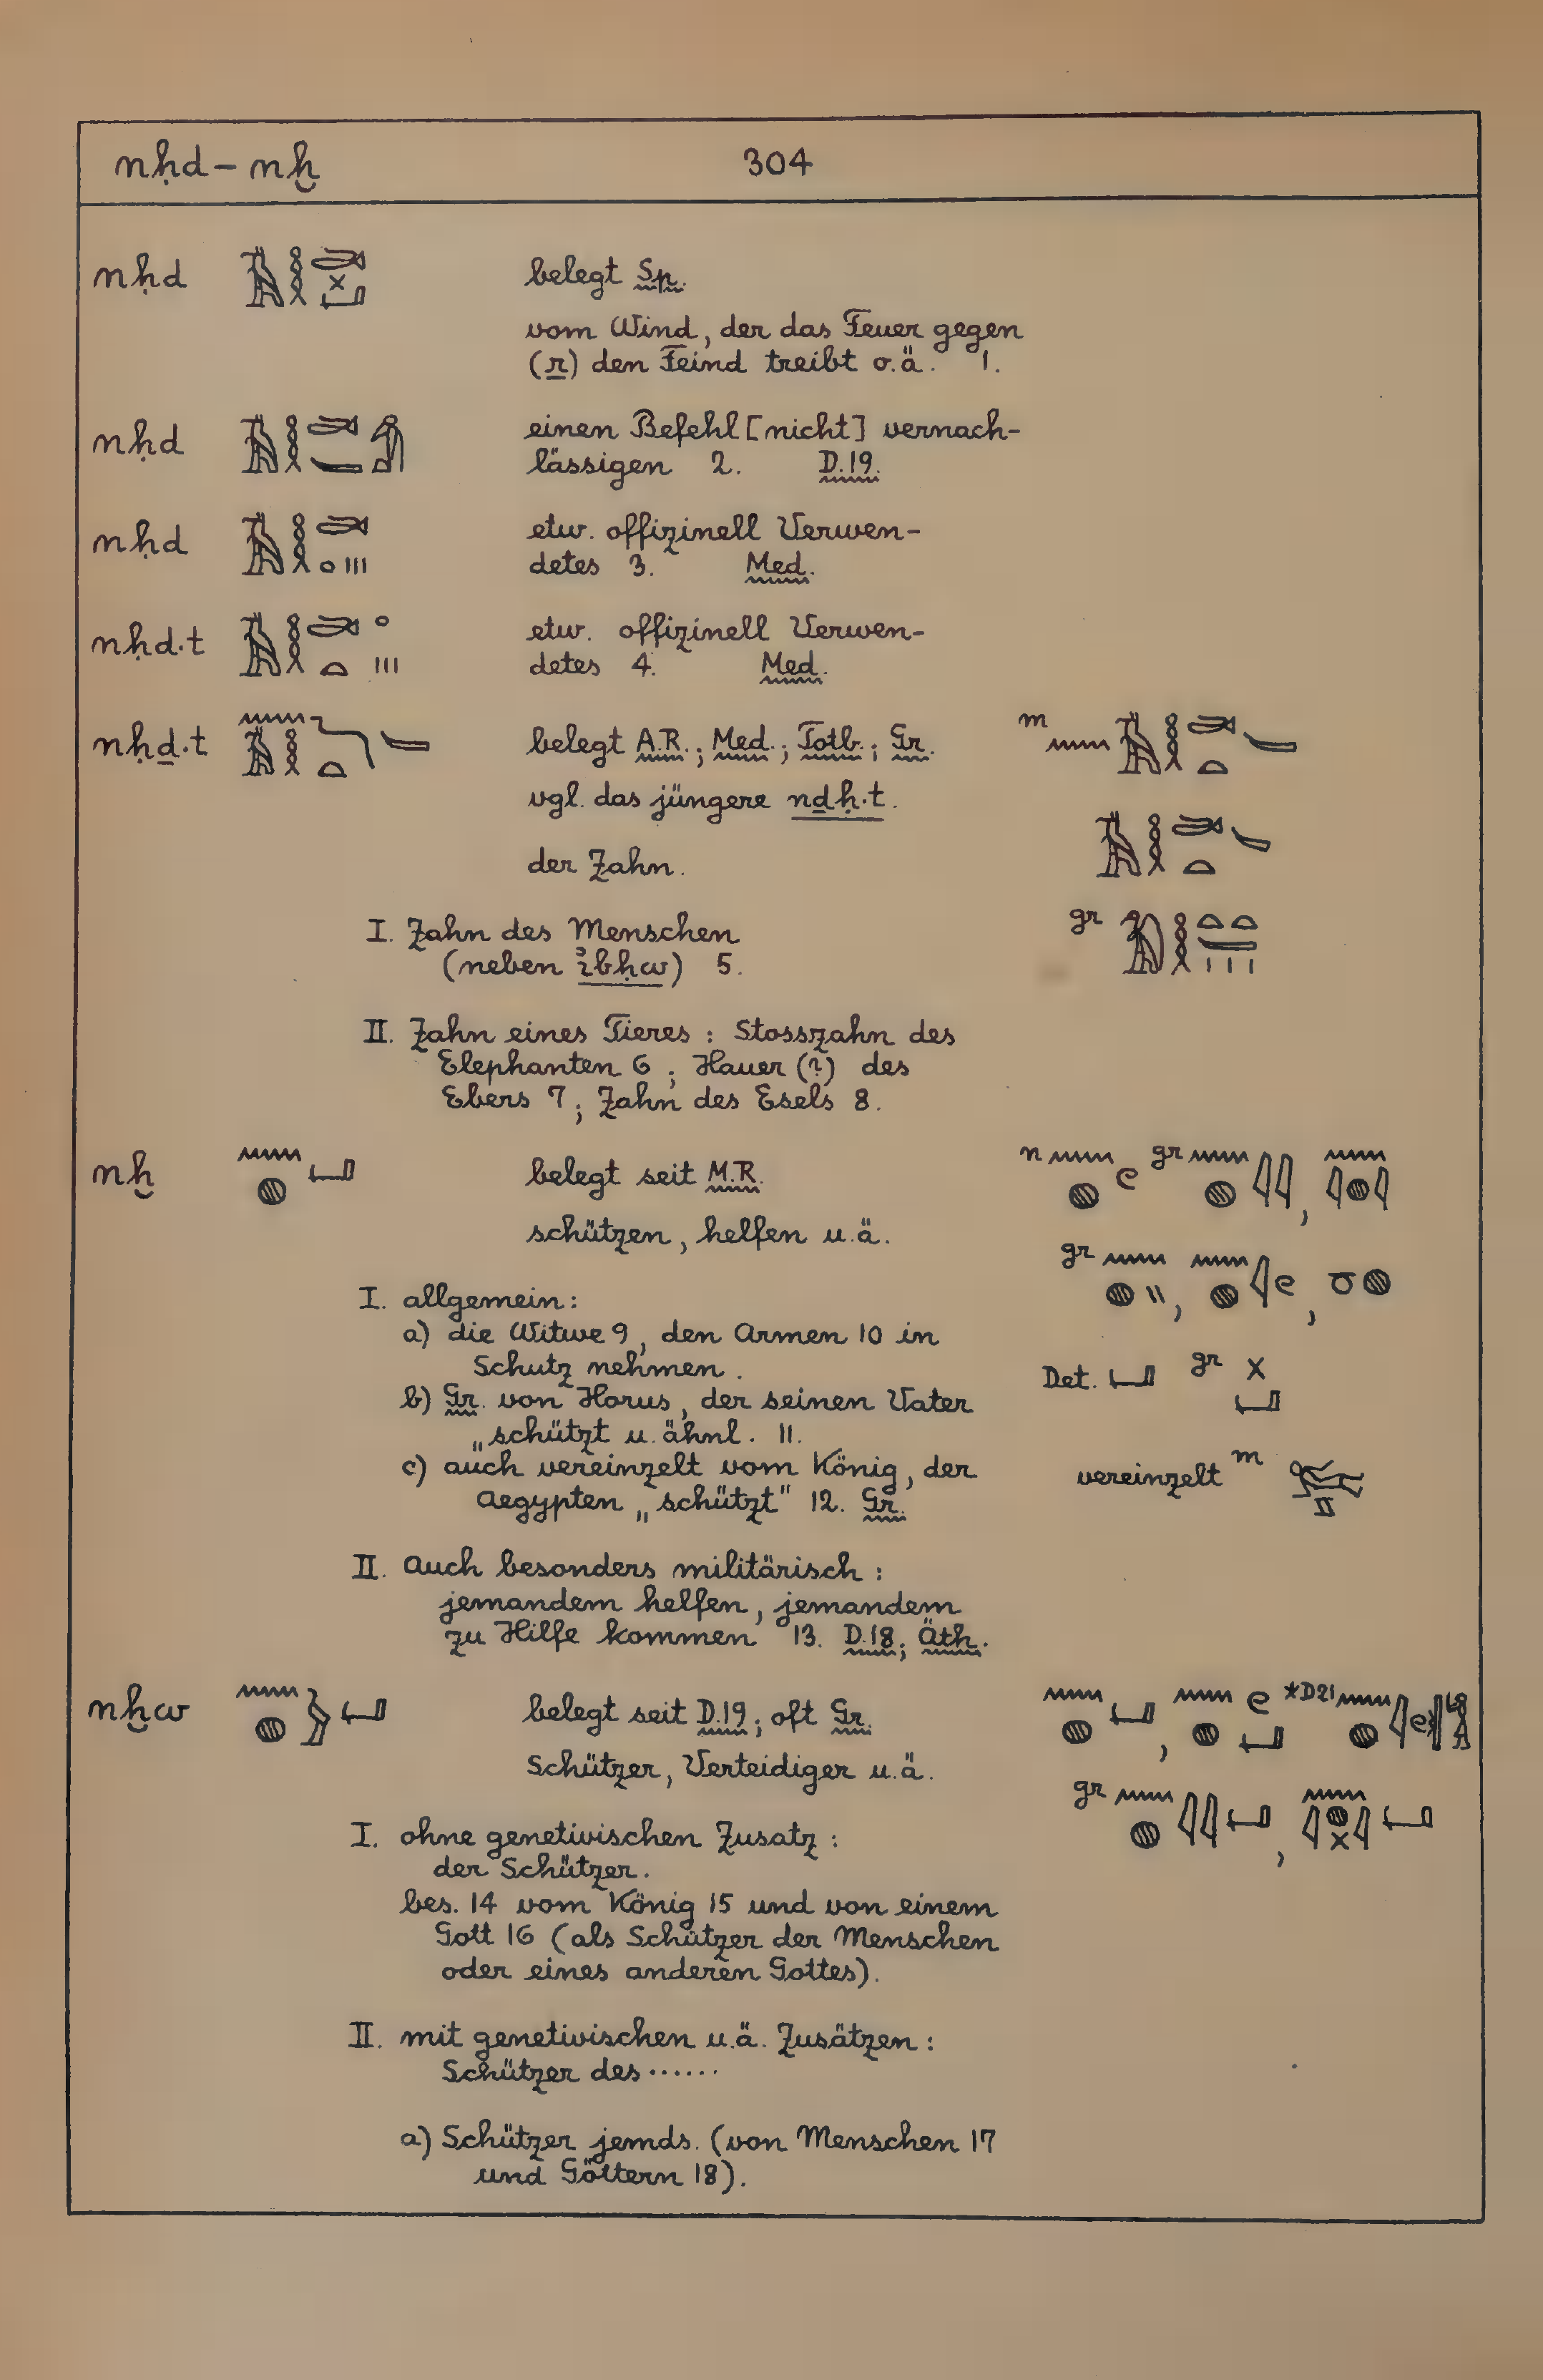 nḥd – nḫ 304
nḥd belegt Sp.
vom Wind, der das Feuer gegen
(r) den Feind treibt o.ä. 1.
nḥd einen Befehl [nicht] vernach-
lässigen 2. D.19.
nḥd etw. offizinell Verwen-
detes 3. Med.
nḥd.t etw. offizinell Verwen-
detes 4. Med.
nḥḏ.t belegt A.R.; Med.; Totb.; Gr. m
vgl. das jüngere nḏḥ.t.
der Zahn.
I. Zahn des Menschen gr
(neben ỉbḥw) 5.
II. Zahn eines Tieres : Stosszahn des
Elephanten 6 ; Hauer (?) des
Ebers 7 ; Zahn des Esels 8.
nḫ belegt seit M.R. n gr ,
schützen, helfen u.ä. gr , ,
I. allgemein :
a) die Witwe 9, den Armen 10 in
Schutz nehmen. Det. gr
b) Gr. von Horus, der seinen Vater
„schützt u. ähnl. 11.
c) auch vereinzelt vom König, der vereinzelt m
Aegypten „schützt" 12. Gr.
II. Auch besonders militärisch :
jemandem helfen, jemandem
zu Hilfe kommen 13. D.18; Äth.
nḫw belegt seit D.19; oft Gr. , *D21
Schützer, Verteidiger u.ä. gr ,
I. ohne genetivischen Zusatz :
der Schützer.
bes. 14 vom König 15 und von einem
Gott 16 (als Schützer der Menschen
oder eines anderen Gottes).
II. mit genetivischen u.ä. Zusätzen :
Schützer des ······
a) Schützer jemds. (von Menschen 17
und Göttern 18).